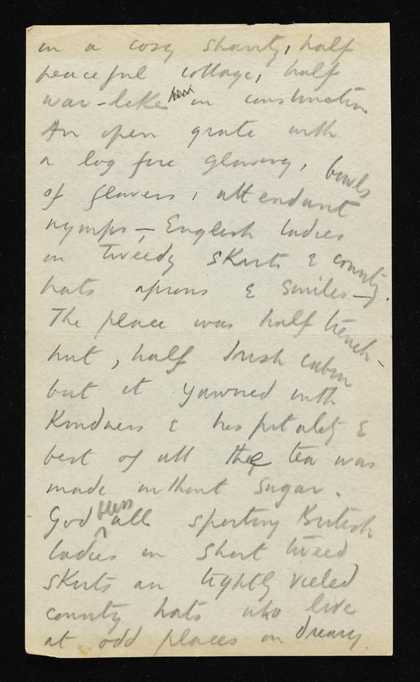 in a cosy shanty, half
peaceful cottage, half
war-like hut in construction
An open grate with
a log fire glowing, bowls
of flowers, attendant
nymphs, – English ladies
in tweedy skirts & county
hats aprons & smiles –
The place was half trench-
hut, half Irish cabin
but it yawned with
Kindness & hospitality &
best of all the tea was
made without sugar.
God bless all sporting British
ladies in short tweed
skirts an tightly veiled
county hats who live
at odd places on dreary